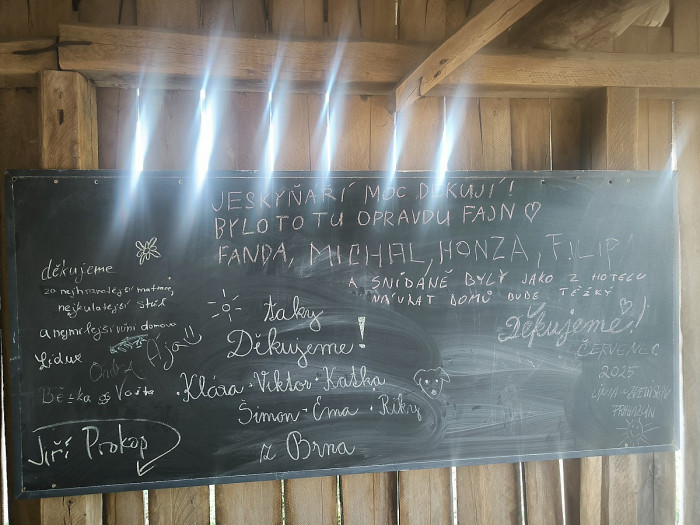 JESKYŇAŘÍ MOC DĚKUJÍ!
BYLO TO TU OPRAVDU FAJN ♡
FANDA, MICHAL, HONZA, FILIP!
A SNÍDANĚ BYLY JAKO Z HOTELU
NÁVRAT DOMŮ BUDE TĚŽKÝ
děkujeme
za nejhvozdnější matrace,
nejkulatější stůl
a nejmilejší vílu domova
Lidus
Ája
Běťka & Vojta
Jiří Prokop
taky
Děkujeme!
Klára • Viktor • Katka
Šimon • Ema • Riky
z Brna
Děkujeme!
ČERVENEC
2025